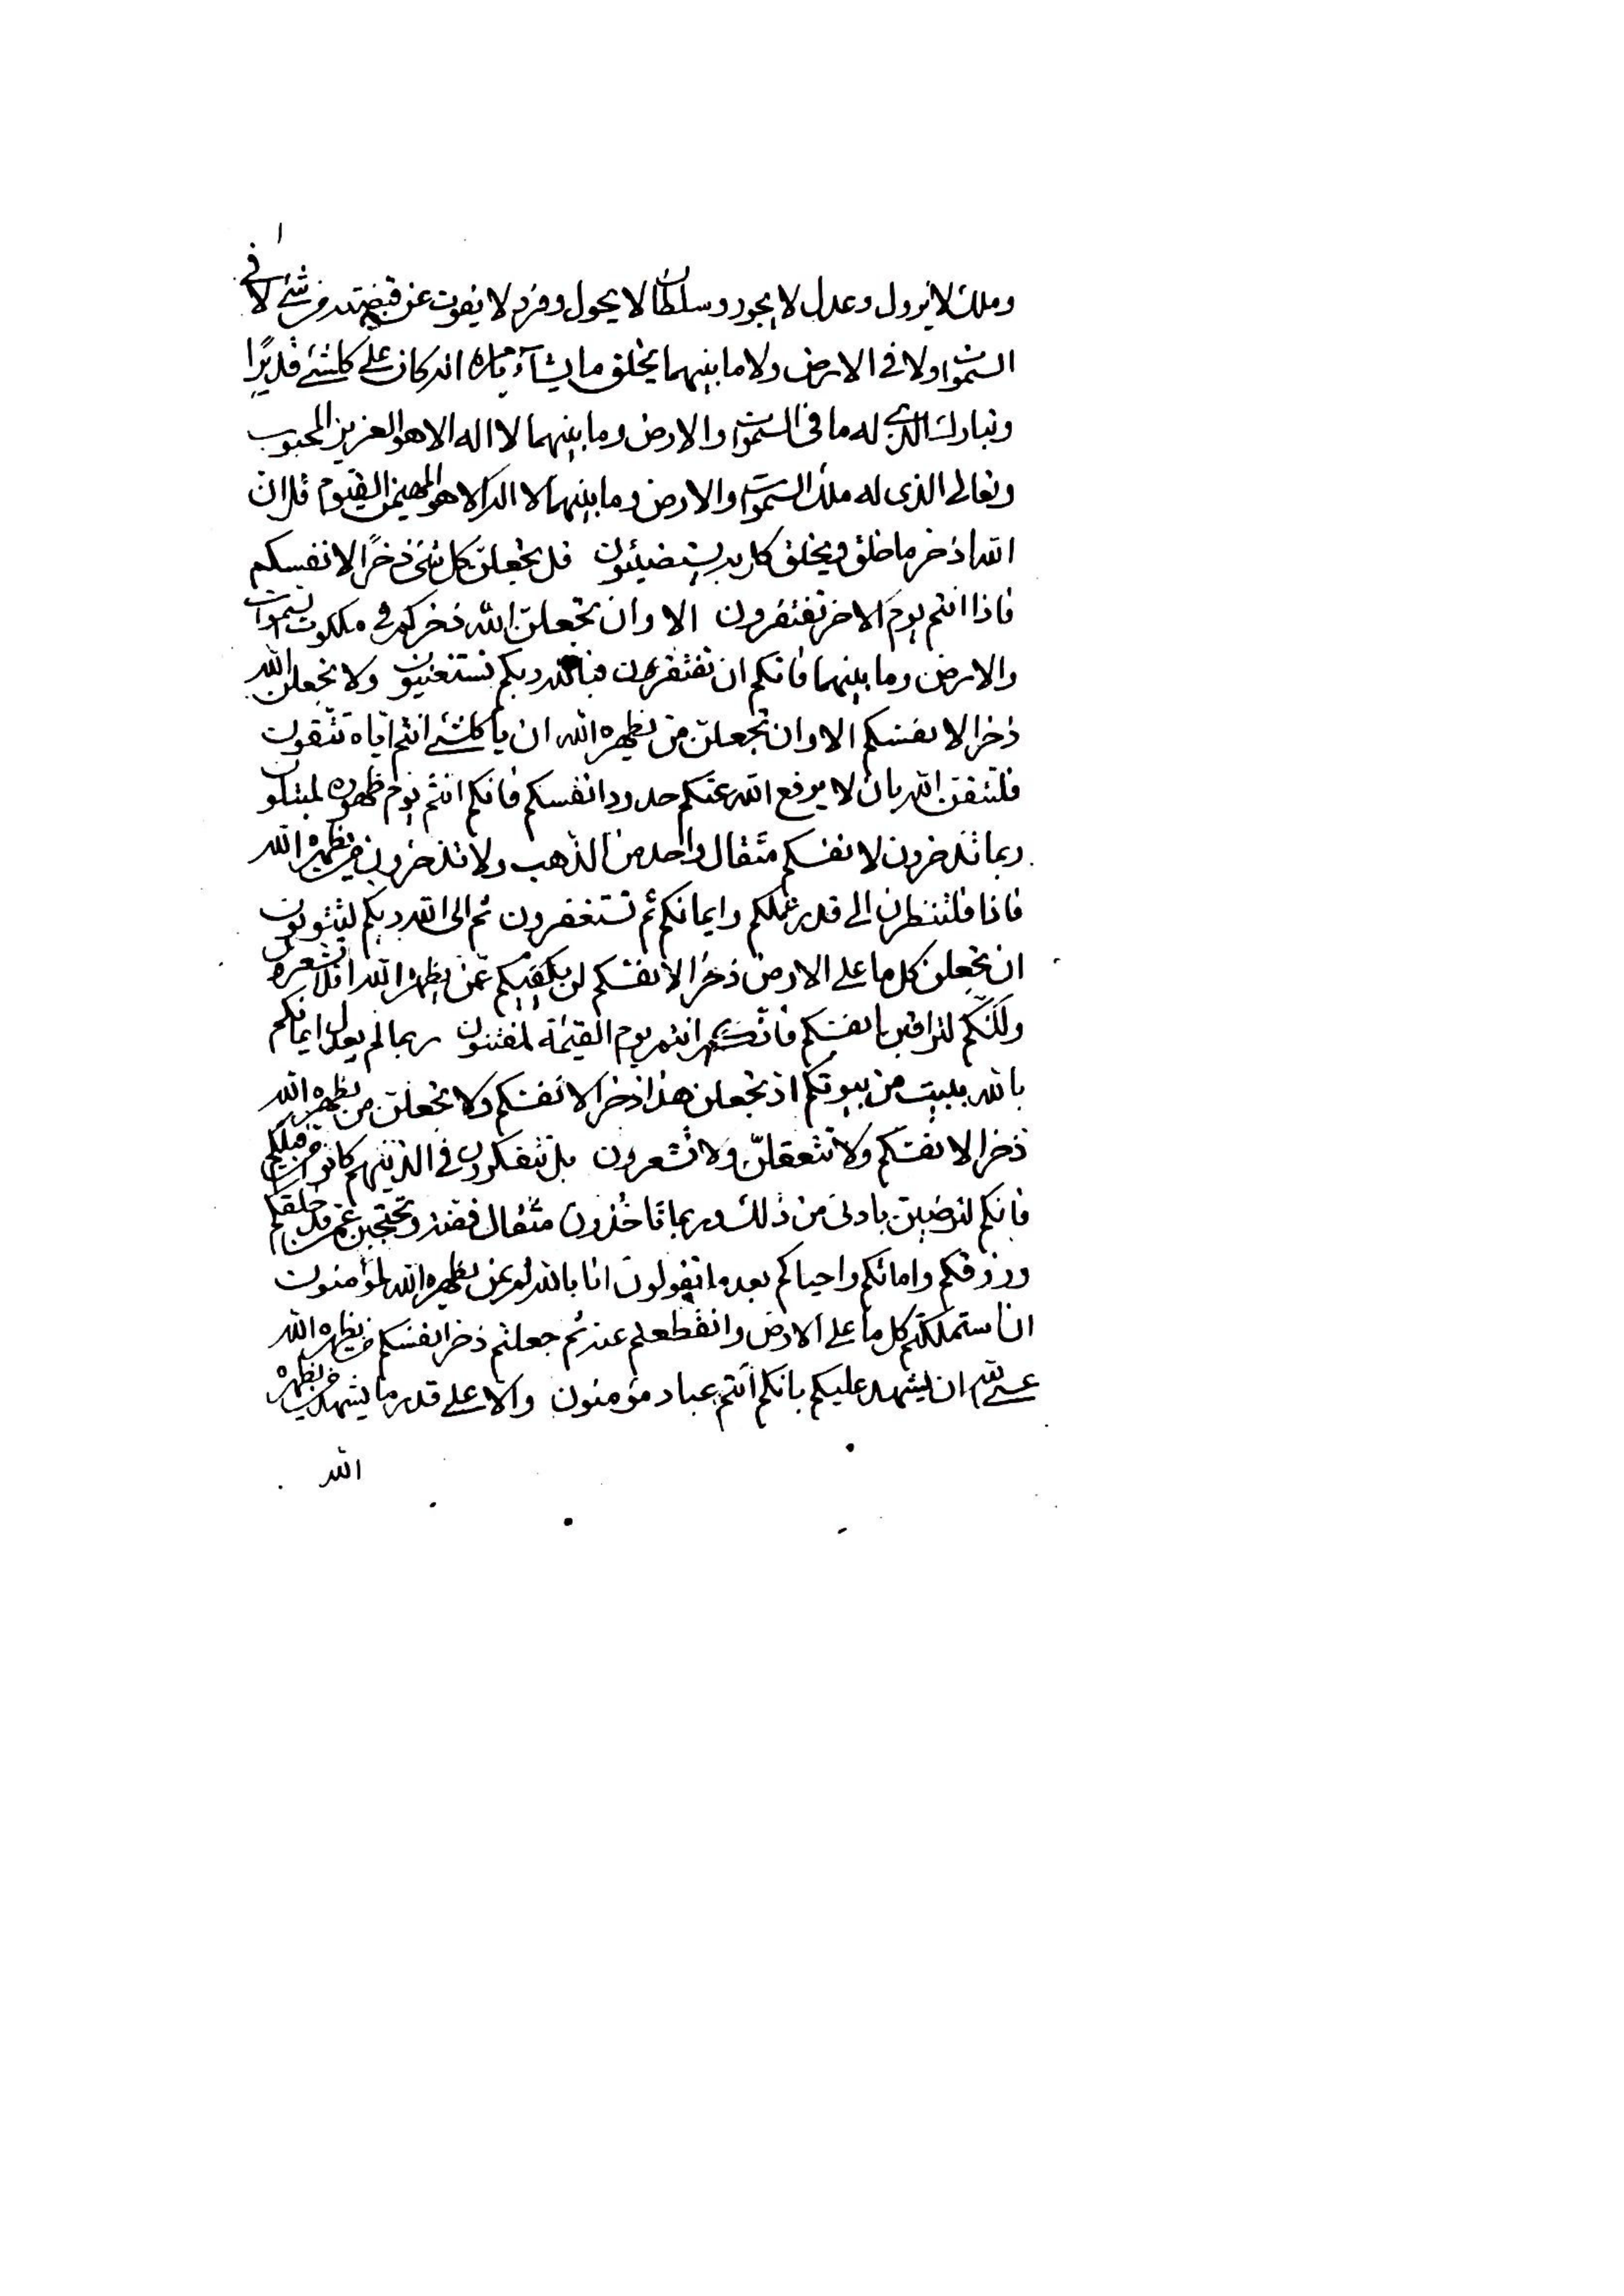 وملك لا يزول وعدل لا يجور وسلطان لا يحول وفرد لا يفوت عن قبضته من شئ لا في
السموات ولا في الارض ولا ما بينهما يخلق ما يشآء بامره انه كان على كلشئ قديرًا
وتبارك الذي له ما في السموات والارض وما بينهما لا اله الا هو العزيز المحبوب
وتعالى الذى له ملك السموات والارض وما بينهما لا اله الا هو المهيمن القيوم قل ان
الله اذخر ما خلق ويخلق كل به يستضيئون قل تجعلن كل شئ ذخرًا لانفسكم
فاذا انتم يوم الاخر تفتقرون الا وان تجعلن الله ذخركم في ملكوت السموات
والارض وما بينهما فانكم ان تفتقرون فبالله ربكم تستغنيون ولا تجعلن الله
ذخرا لانفسكم الا وان تجعلن من يظهره الله ان يا كلشئ انتم اياه تتقون
فلتتقن الله بان لا يرفع الله عنكم حدود انفسكم فانكم انتم يوم ظهوره لمبتلون
ربما تذخرون لانفسكم مثقال واحد من الذهب ولا تذخرون من يظهره الله
فاذا فلتنظرن الى قدر عملكم وايمانكم ثم تستغفرون ثم الى الله ربكم لتتوبون
ان تجعلن كل ما على الارض ذخرًا لانفسكم لن يكفيكم عمن يظهره الله افلا تشعرون
ولكنكم لتراقبن انفسكم فانكم انتم يوم القيمة لمفتنون ربما لم يعدل ايمانكم
بالله ببيت من بيوتكم اذ تجعلن هذا ذخرا لانفسكم ولا تجعلن من يظهره الله
ذخرا لانفسكم ولا تتعقلن ولا تشعرون بل تتفكرون في الذينهم كانوا من قبلكم
فانكم لترضين بادنى من ذلك وربما تاخذون مثقال فضة وتحتجبن عمن قد خلقكم
ورزقكم واماتكم واحياكم بعد ما تقولون انا بالله ثم بمن يظهره الله لمؤمنون
ان استملكتم كل ما على الارض وانقطعتم عنه ثم جعلتم ذخر انفسكم من يظهره الله
عسى الله ان يشهد عليكم بانكم انتم عباد مؤمنون والا على قدر ما يشهد من يظهره
الله